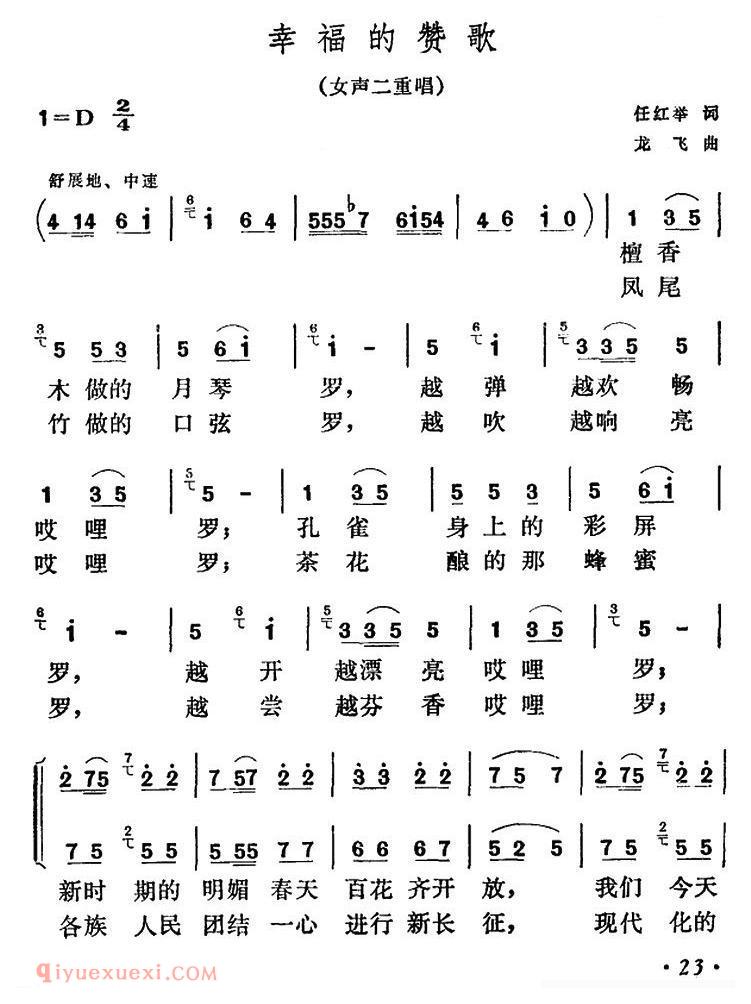 幸福的赞歌
(女声二重唱)
1=D 2/4
任红举 词
龙飞 曲
舒展地、中速
(4 14 6 i | 6 i 6 4 | 555♭7 6i54 | 4 6 i 0) | 1 3 5 |
檀香
凤尾
3 5 5 3 | 5 6 i | 6 i - | 5 6 i | 5 3 3 5 5 |
木做的 月琴 罗, 越弹 越欢畅
竹做的 口弦 罗, 越吹 越响亮
1 3 5 | 5 5 - | 1 3 5 | 5 5 3 | 5 6 i |
哎哩 罗; 孔雀 身上的 彩屏
哎哩 罗; 茶花 酿的那 蜂蜜
6 i - | 5 6 i | 5 3 3 5 5 | 1 3 5 | 3 5 - |
罗, 越开 越漂亮 哎哩 罗;
罗, 越尝 越芬香 哎哩 罗;
2 75 7 2 2 | 7 57 2 2 | 3 3 2 2 | 7 5 7 | 2 75 7 2 2 |
7 5 2 5 5 | 5 55 7 7 | 6 6 6 7 | 5 2 5 | 7 5 2 5 5 |
新时 期的 明媚 春天 百花 齐开 放, 我们 今天
各族 人民 团结 一心 进行 新长 征, 现代 化的
qiyuexuexi.com
· 23 ·